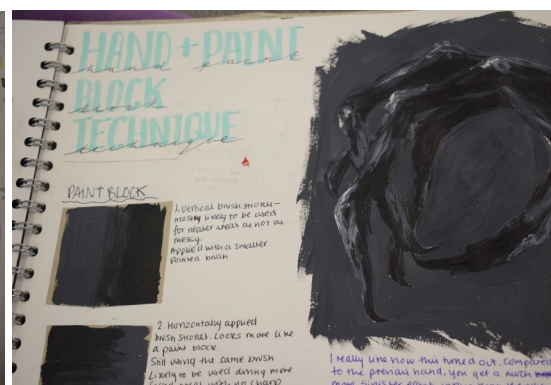 HAND + PAINT
hand paint
BLOCK
block
TECHNIQUE
technique
PAINT BLOCK
1. Vertical brush strokes -
mostly likely to be used
for neater areas as not as
messy.
Applied with a smaller
pointed brush
2. Horizontally applied
brush strokes. Looks more like
a paint block.
Still using the same brush
Likely to be used during more
areas with no sharp
I really like how this turned out. Compared
to the previous hand, you get a much
more sinister